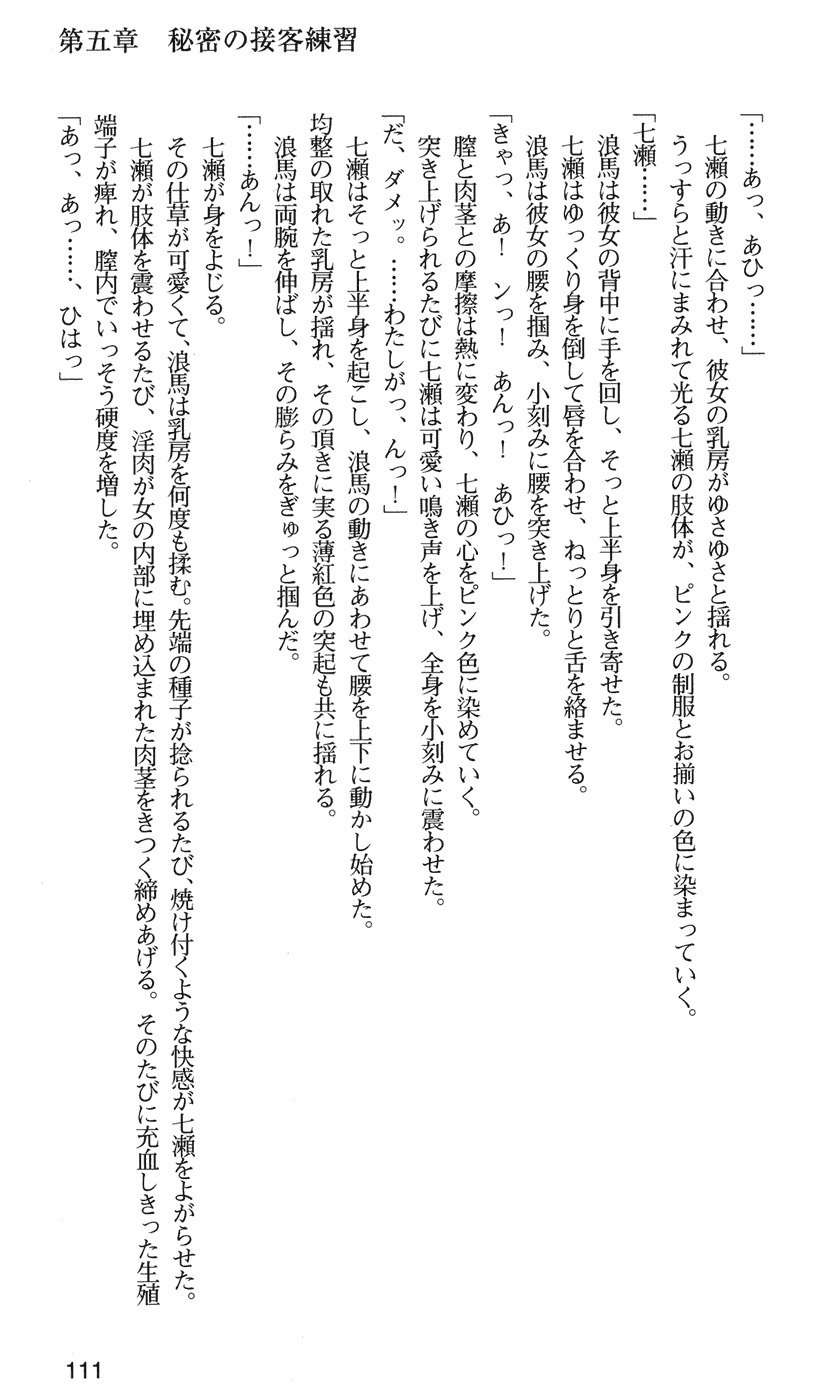 第五章　秘密の接客練習
「……あっ、あひっ……」
七瀬の動きに合わせ、彼女の乳房がゆさゆさと揺れる。
うっすらと汗にまみれて光る七瀬の肢体が、ピンクの制服とお揃いの色に染まっていく。
「七瀬……」
浪馬は彼女の背中に手を回し、そっと上半身を引き寄せた。
七瀬はゆっくり身を倒して唇を合わせ、ねっとりと舌を絡ませる。
浪馬は彼女の腰を掴み、小刻みに腰を突き上げた。
「きゃっ、あ！　ンっ！　あんっ！　あひっ！」
膣と肉茎との摩擦は熱に変わり、七瀬の心をピンク色に染めていく。
突き上げられるたびに七瀬は可愛い鳴き声を上げ、全身を小刻みに震わせた。
「だ、ダメッ。……わたしがっ、んっ！」
七瀬はそっと上半身を起こし、浪馬の動きにあわせて腰を上下に動かし始めた。
均整の取れた乳房が揺れ、その頂きに実る薄紅色の突起も共に揺れる。
浪馬は両腕を伸ばし、その膨らみをぎゅっと掴んだ。
「……あんっ！」
七瀬が身をよじる。
その仕草が可愛くて、浪馬は乳房を何度も揉む。先端の種子が捻られるたび、焼け付くような快感が七瀬をよがらせた。
七瀬が肢体を震わせるたび、淫肉が女の内部に埋め込まれた肉茎をきつく締めあげる。そのたびに充血しきった生殖
端子が痺れ、膣内でいっそう硬度を増した。
「あっ、あっ……、ひはっ」
111